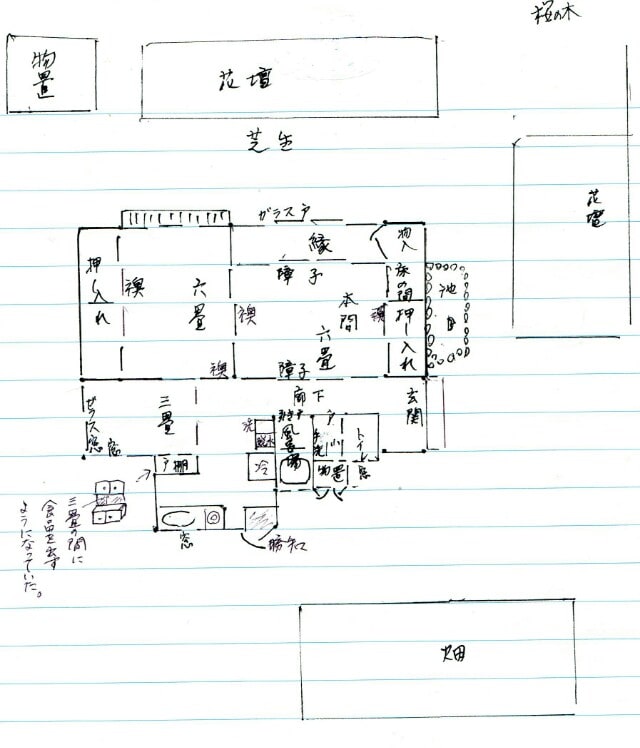 桜の木
物置
花壇
芝生
花壇
ガラス戸
縁
物入
障子
床の間
池
押し入れ
襖
六畳
襖
本間
六畳
襖
押し入れ
襖
障子
廊下
玄関
ガラス窓
三畳
窓
洗
脱水
風呂場
手洗
戸
トイレ
窓
物置
戸棚
冷
窓
勝手口
三畳の間に
食品を出す
ようになっていた。
畑